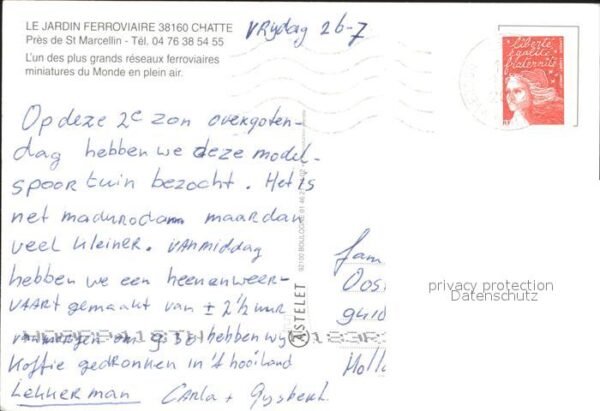 LE JARDIN FERROVIAIRE 38160 CHATTE
Près de St Marcellin - Tél. 04 76 38 54 55
L'un des plus grands réseaux ferroviaires
miniatures du Monde en plein air.
VRijdag 26-7
liberté
égalité
fraternité
Op deze 2e zon overgoten-
dag hebben we deze model-
spoor tuin bezocht. Het is
net madurodam maar dan
veel kleiner. vanmiddag
hebben we een heenenweer-
VAART gemaakt van ± 2½ uur
vanmorgen om 9.30 hebben wy
Koffie gedronken in 't hooiland
Lekkerman Carla + Gysbert.
ASTELET
92100 BOULOGNE
fam
Oos
9410
Holl
privacy protection
Datenschutz